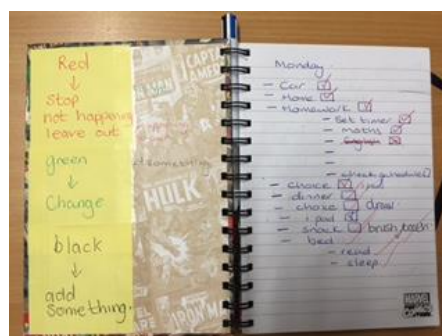 Red
↓
stop
not happening
leave out
green
↓
Change
black
↓
add
something.
CAPTAIN
AMERICA
HULK
IRON MAN
something
Monday
- Car
- Home
- Homework
- Set timer
- maths
- English
-
-
- check schedule
- choice ipad
- dinner
- choice draw
- ipad
- snack brush teeth
- bed
- read
- sleep
MARVEL